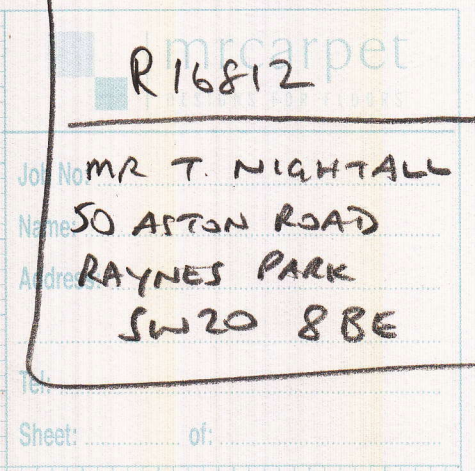 mrcarpet
DESIGNS FOR FLOORS
R16812
Job No: MR T. NIGHTALL
Name: 50 ASTON ROAD
Address: RAYNES PARK
SW20 8BE
Tel:
Sheet: of: